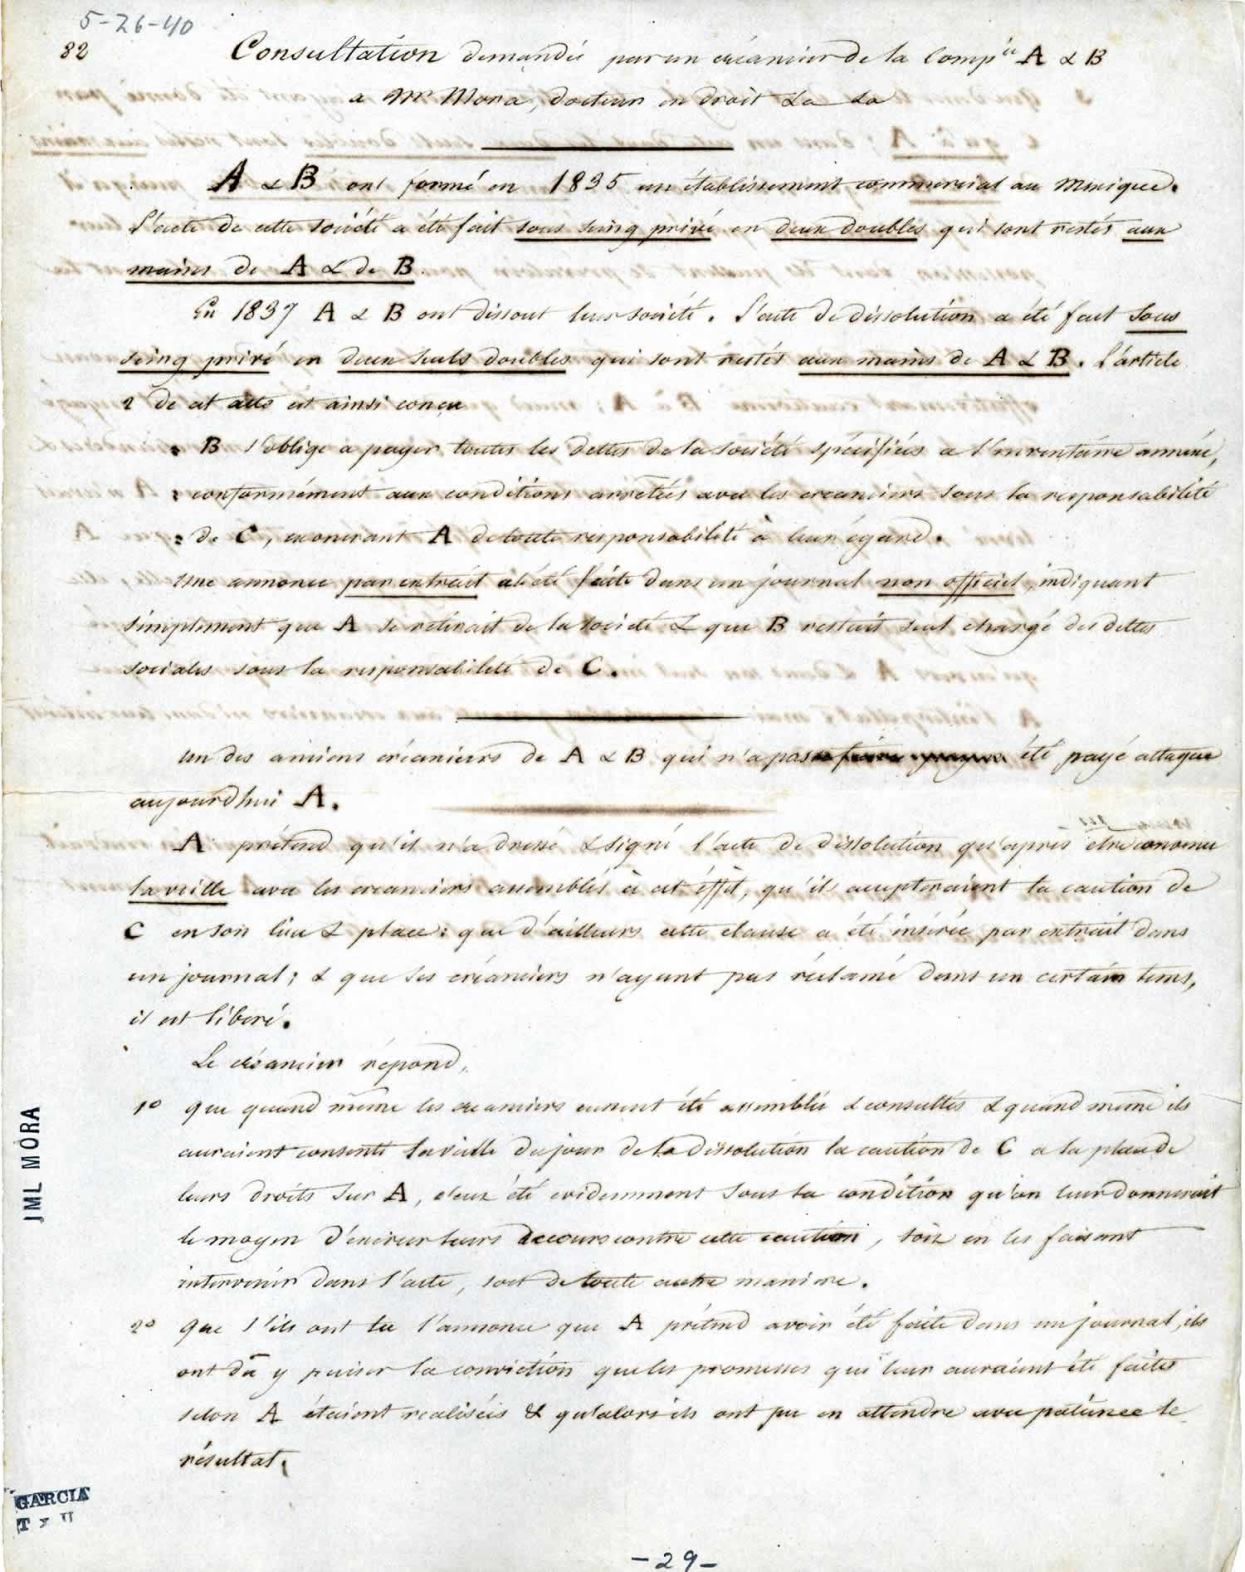 5-26-40
82 Consultation demandée par un créancier de la Compie A & B
a Mr Mora, docteur en droit &a &a
A & B ont formé en 1835 un établissement commercial au Mexique.
L'acte de cette société a été fait sous seing privé en deux doubles qui sont restés aux
mains de A & de B.
En 1837 A & B ont dissout leur société. L'acte de dissolution a été fait sous
seing privé en deux seuls doubles qui sont restés aux mains de A & B. L'article
2 de cet acte est ainsi conçu
" B s'oblige a payer toutes les dettes de la société spécifiées a l'inventaire annexé,
" conformément aux conditions arretées avec les creanciers sous la responsabilité
" de C, exonerant A de toute responsabilité à leur égard.
Une annonce par extrait a été faite dans un journal non officiel, indiquant
simplement que A se retirait de la société & que B restait seul chargé des dettes
sociales sous la responsabilité de C.
Un des anciens créanciers de A & B qui n'a pas été payé attaque
aujourd'hui A.
A prétend qu'il n'a dressé & signé l'acte de dissolution qu'après être convenu
la veille avec les creanciers assemblés à cet effet, qu'ils accepteraient la caution de
C en son lieu & place: que d'ailleurs cette clause a été insérée par extrait dans
un journal; & que les créanciers n'ayant pas réclamé dans un certain tems,
il est libéré.
Le créancier répond,
1o que quand même les creanciers eussent été assemblés & consultés & quand même ils
auraient consenti la veille du jour de la dissolution la caution de C a la place de
leurs droits sur A, c'eut été evidemment sous la condition qu'on leur donnerait
le moyen d'exercer leurs recours contre cette caution, soit en les faisant
intervenir dans l'acte, soit de toute autre maniere.
2o que s'ils ont lu l'annonce que A prétend avoir été faite dans un journal, ils
ont dû y puiser la conviction que les promesses qui leur auraient été faites
selon A étaient realisées & qu'alors ils ont pu en attendre avec patience le
résultat.
JML MORA
GARCIA
-29-